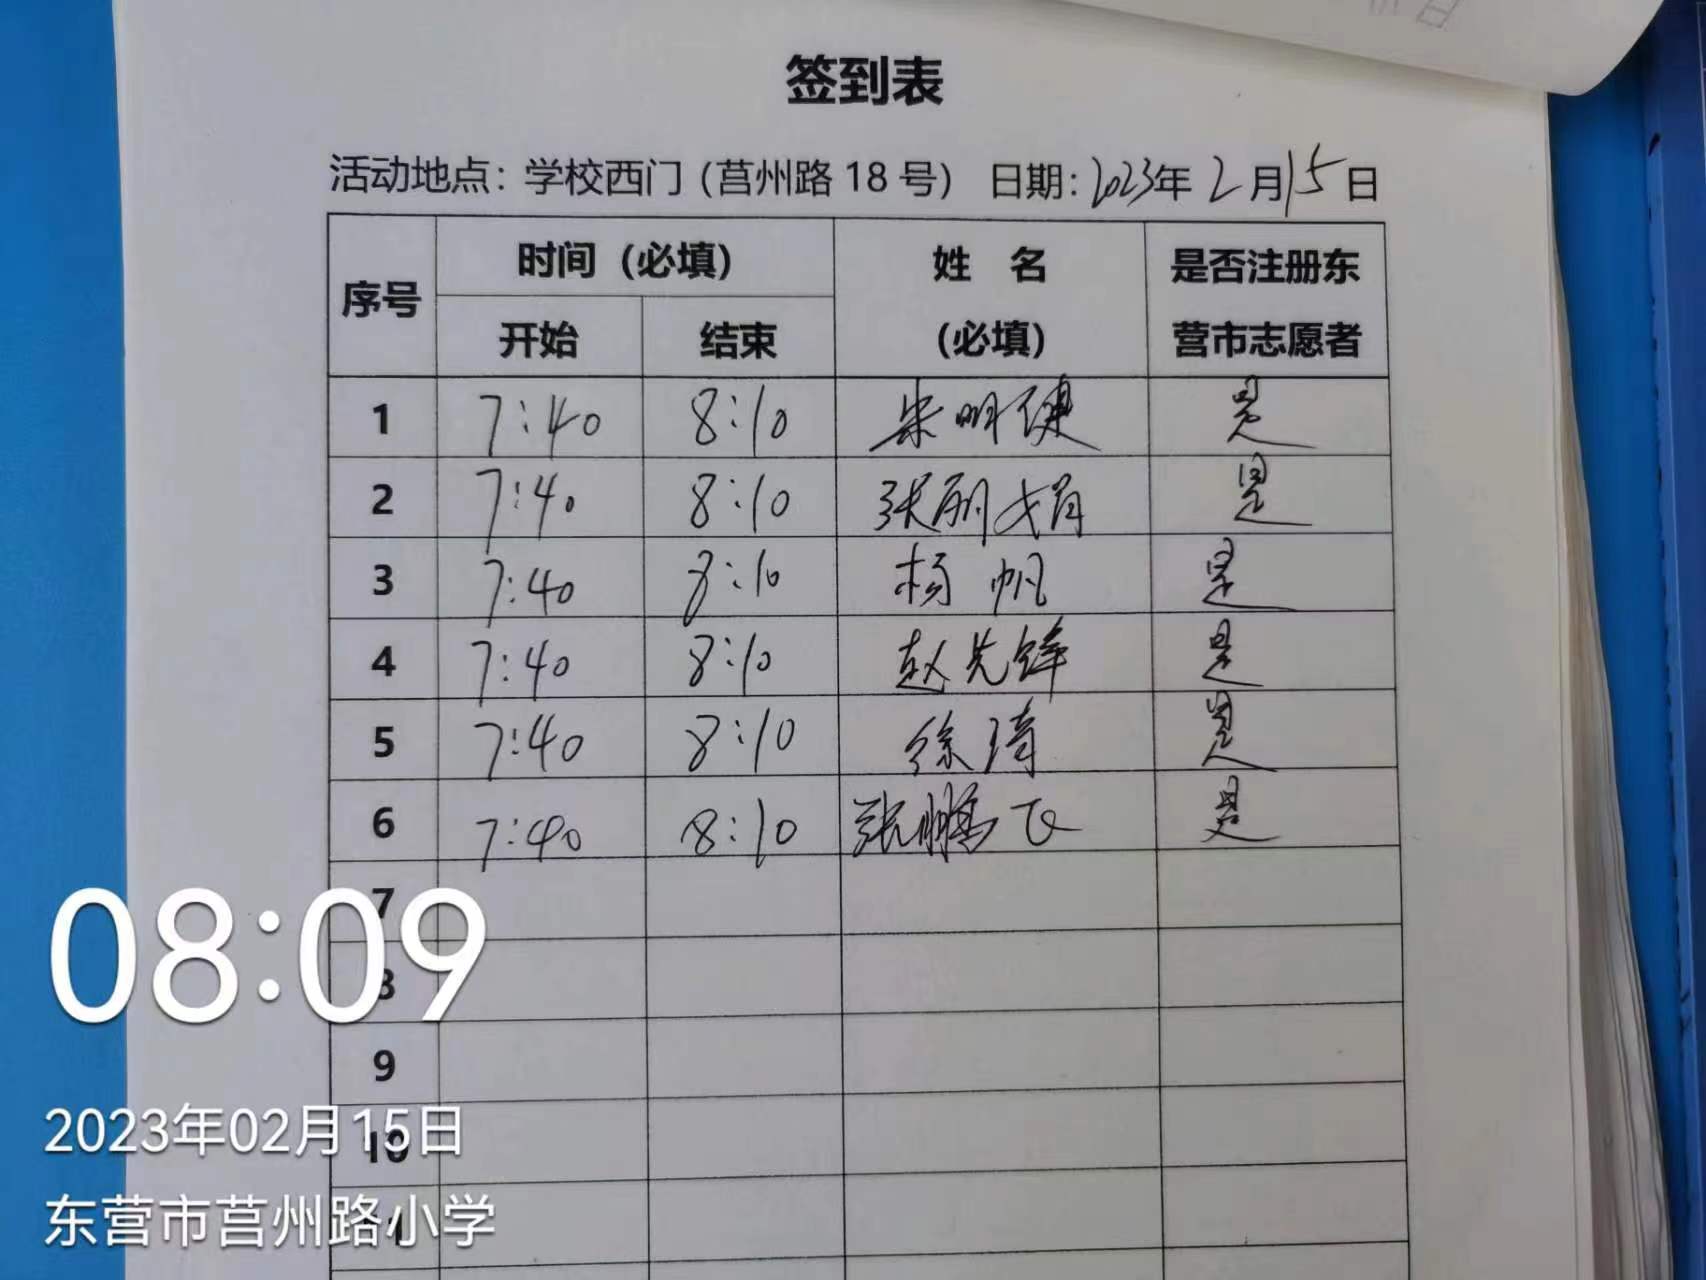 签到表
活动地点：学校西门（莒州路 18 号） 日期：2023年 2 月 15 日
序号 时间（必填） 姓 名（必填） 是否注册东营市志愿者
开始 结束
1 7:40 8:10 朱明健 是
2 7:40 8:10 张丽娟 是
3 7:40 8:10 杨帆 是
4 7:40 8:10 赵先锋 是
5 7:40 8:10 徐琦 是
6 7:40 8:10 张鹏飞 是
7
8
9
10
11
08:09
2023年02月15日
东营市莒州路小学